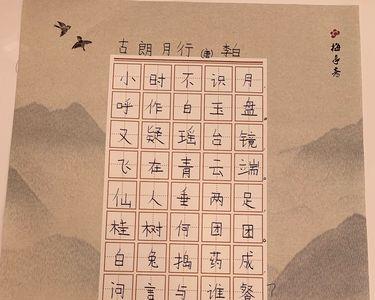 古朗月行(唐)李白
小时不识月
呼作白玉盘
又疑瑶台镜
飞在青云端。
仙人垂两足
桂树何团团。
白兔捣药成
问言与谁餐?